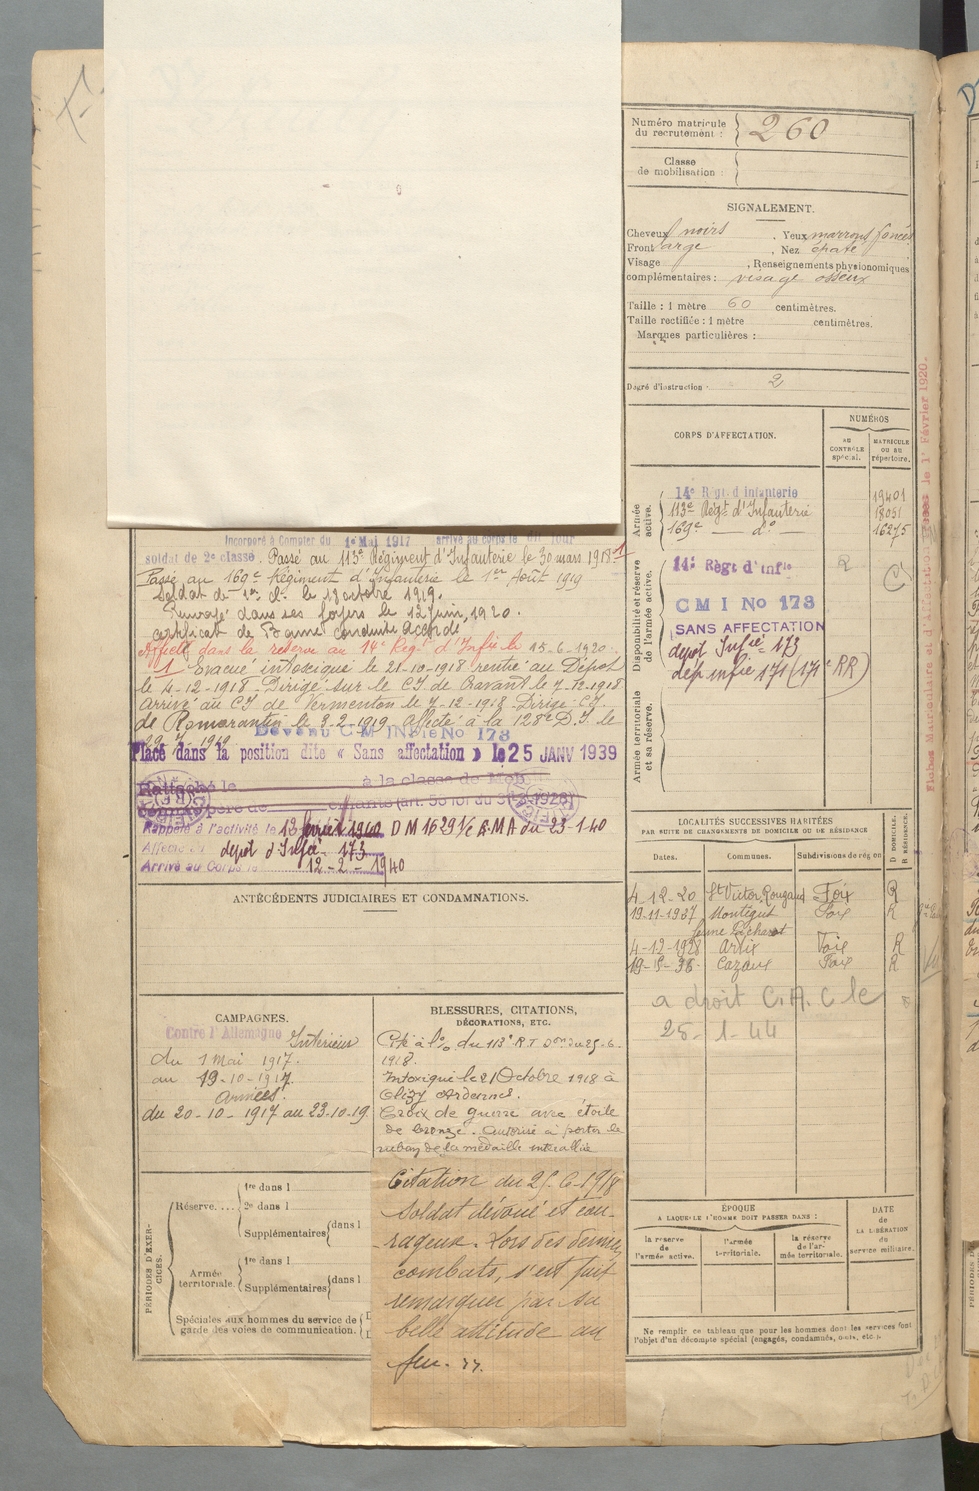 Numéro matricule
du recrutement : 260
Classe
de mobilisation :
SIGNALEMENT.
Cheveux noirs . Yeux marrons foncés
Front large , Nez épaté
Visage , Renseignements physionomiques
complémentaires : visage osseux
Taille : 1 mètre 60 centimètres.
Taille rectifiée : 1 mètre centimètres.
Marques particulières :
Degré d'instruction : 2
CORPS D'AFFECTATION.
NUMÉROS
AU CONTRÔLE spécial.
MATRICULE OU AU répertoire.
Armée active.
14e Régt d'infanterie 19401
113e Régt d'Infanterie 18051
169e — do — 16275
Disponibilité et réserve de l'armée active.
14e Régt d'Infie R
C M I No 173
SANS AFFECTATION
depot Infie 173
dep infie 171 (171e RR)
Armée territoriale et sa réserve.
Fiches Matriculaire et d' du 1er Février 1920.
Incorporé à Compter du 1er Mai 1917 arrivé au corps le dit jour
soldat de 2e classe. Passé au 113e Régiment d'Infanterie le 30 mars 1918. 1
Passé au 169e Régiment d'Infanterie le 1er Août 1919
Soldat de 1ère Cl. le 18 octobre 1919.
Renvoyé dans ses foyers le 12 juin 1920.
certificat de Bonne conduite accordé
Affecté dans la réserve au 14e Régt d'Infie le 15-6-1920.
1 Evacué intoxiqué le 21-10-1918 rentré au Dépôt
le 4-12-1918 - Dirigé sur le CI de Cravant le 7-12-1918
arrivé au CI de Vermenton le 7-12-1918 - Dirigé CI
de Romorantin le 8-2-1919 - affecté à la 128e D.I. le
Devenu C M INFie No 173
Placé dans la position dite « Sans affectation » le 25 JANV 1939
Rattaché le à la classe de Mob
père de enfants (art. 58 loi du 1928)
Rappelé à l'activité le 12 février 1940 D M 1629 1/c E.M.A du 23-1-40
Affecté au depot d'Infie 173
Arrivé au Corps le 12-2-1940
ANTÉCÉDENTS JUDICIAIRES ET CONDAMNATIONS.
LOCALITÉS SUCCESSIVES HABITÉES
PAR SUITE DE CHANGEMENTS DE DOMICILE OU DE RÉSIDENCE.
Dates. Communes. Subdivisions de région D DOMICILE. R RÉSIDENCE.
4-12-20 St Victor Rouzaud Foix R
19-11-1937 Montégut Foix R
4-12-1928 Artix Foix R
19-5-36 Cazaux Foix R
a droit C.A.C le
25-1-44
CAMPAGNES.
Contre l'Allemagne Intérieur
du 1 Mai 1917.
au 19-10-1917.
Armées.
du 20-10-1917 au 23-10-19
BLESSURES, CITATIONS,
DÉCORATIONS, ETC.
Cité à l'o/. du 113e R.I. Don du 25-6-
1918.
Intoxiqué le 21 Octobre 1918 à
Ardennes.
Croix de guerre avec étoile
de bronze. Autorisé à porter le
ruban de la médaille interalliée
Citation du 25-6-1918
Soldat dévoué et cou-
rageux. Lors des derniers
combats, s'est fait
remarquer par sa
belle attitude au
feu.
PÉRIODES D'EXERCICES.
Réserve.... 1re dans l
2e dans l
Supplémentaires dans l
Armée territoriale. 1re dans l
Supplémentaires dans l
Spéciales aux hommes du service de
garde des voies de communication.
ÉPOQUE
A LAQUELLE L'HOMME DOIT PASSER DANS :
la réserve de l'armée active. l'armée territoriale. la réserve de l'armée territoriale.
DATE de LA LIBÉRATION du service militaire.
Ne remplir ce tableau que pour les hommes dont les services font
l'objet d'un décompte spécial (engagés, condamnés, omis, etc.).